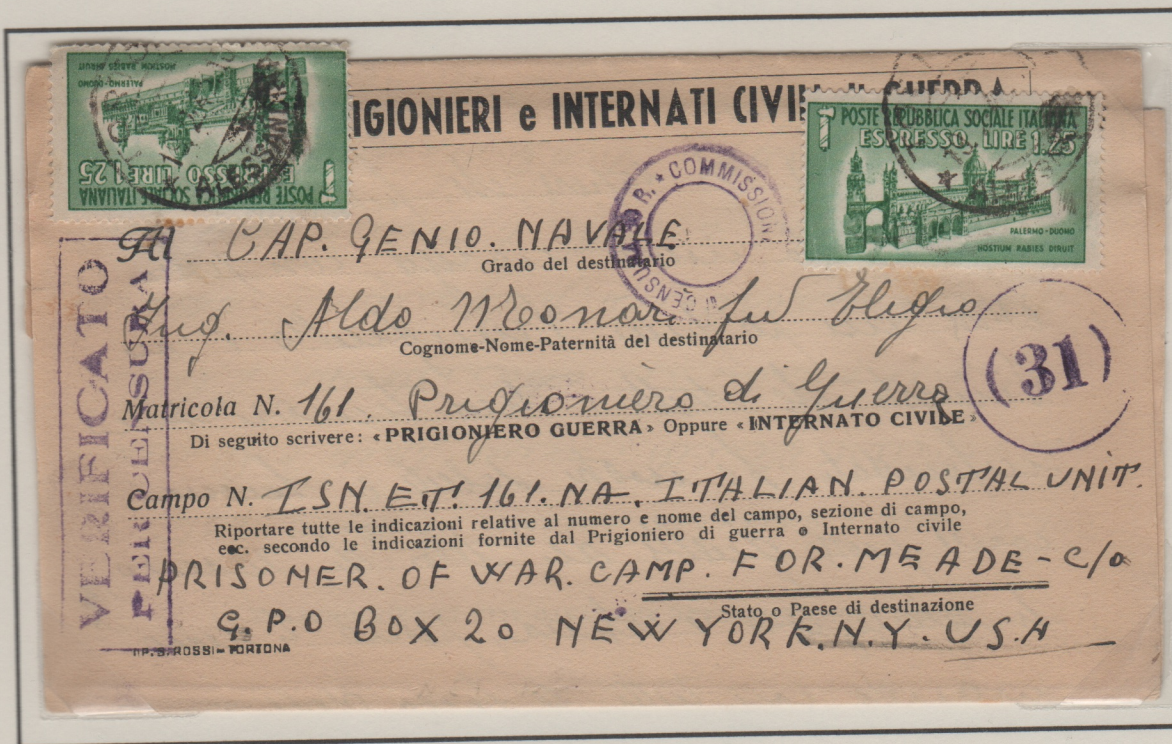 PRIGIONIERI e INTERNATI CIVILI GUERRA
POSTE REPUBBLICA SOCIALE ITALIANA
ESPRESSO LIRE 1.25
PALERMO-DUOMO
HOSTIUM RABIES DIRUIT
POSTE REPUBBLICA SOCIALE ITALIANA
ESPRESSO LIRE 1.25
PALERMO-DUOMO
HOSTIUM RABIES DIRUIT
ALESSAN
R. * COMMISSIONE CENSURA
Al CAP. GENIO. NAVALE
Grado del destinatario
Ing. Aldo Monari fu Eligio
Cognome-Nome-Paternità del destinatario
(31)
Matricola N. 161. Prigioniero di Guerra
Di seguito scrivere: «PRIGIONIERO GUERRA» Oppure «INTERNATO CIVILE»
Campo N. ISN. E.T. 161. NA. ITALIAN. POSTAL UNIT.
Riportare tutte le indicazioni relative al numero e nome del campo, sezione di campo,
ecc. secondo le indicazioni fornite dal Prigioniero di guerra o Internato civile
PRISONER. OF WAR. CAMP. FOR. MEADE - C/o
Stato o Paese di destinazione
G. P. O BOX 20 NEW YORK. N.Y. U.S.A
TIP. S. ROSSI - TORTONA
VERIFICATO
PER CENSURA